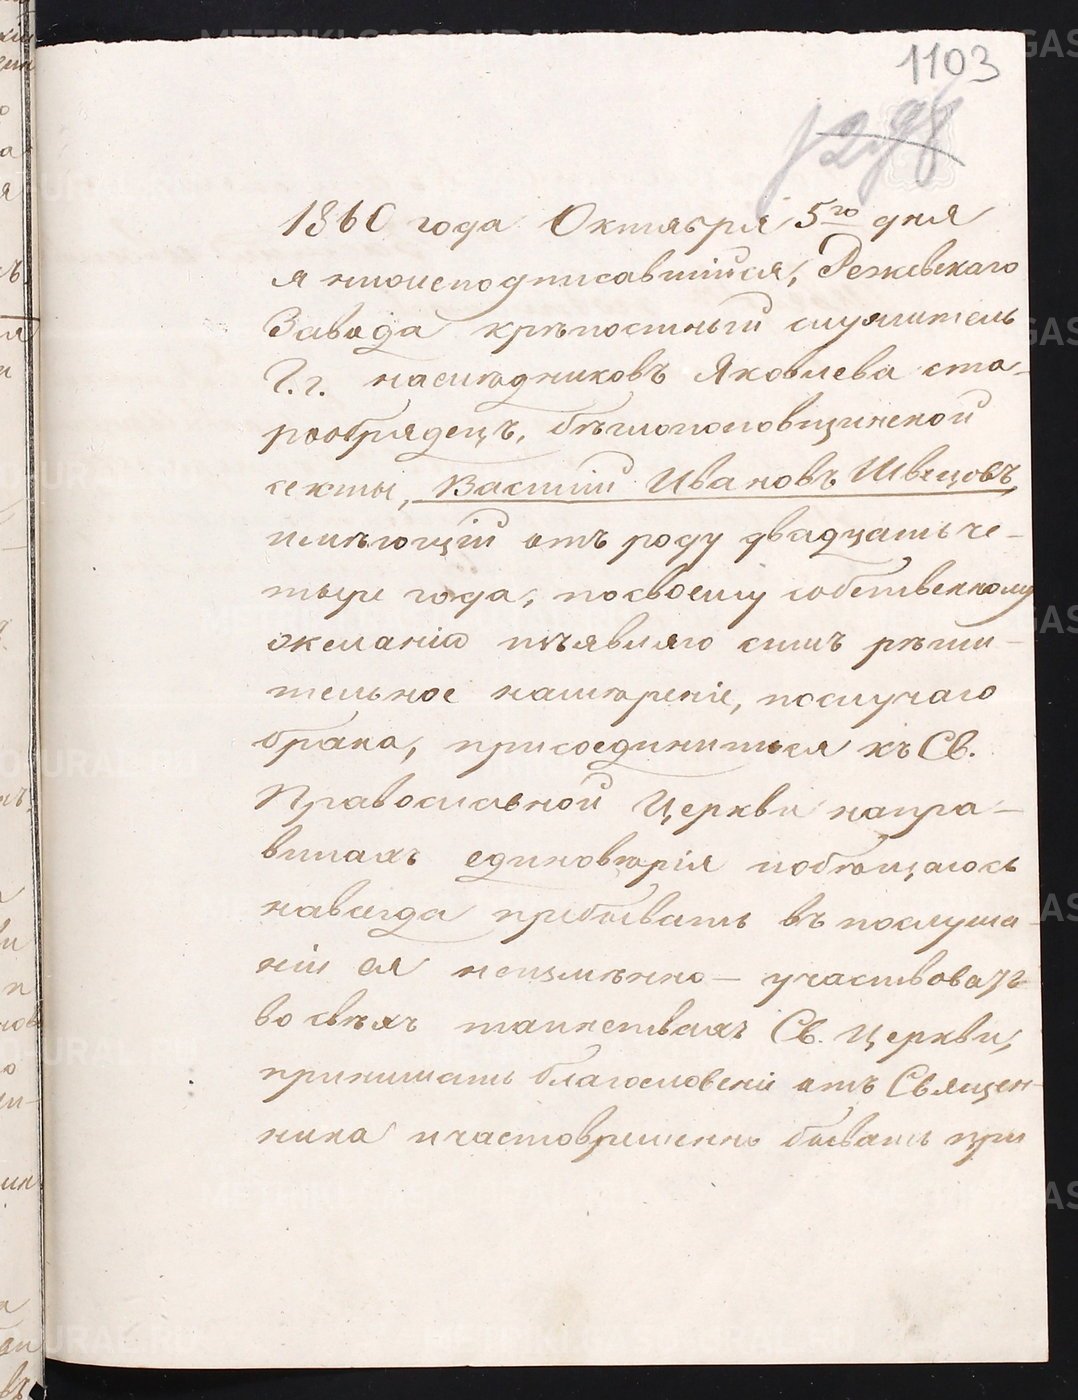 1103
1860 года Октября 5го дня
я нижеподписавшійся, Режевскаго
Завода крѣпостный служитель
Г.г. наслѣдниковъ Яковлева ста-
рообрядецъ, бѣглопоповщинской
секты, Василій Ивановъ Швецовъ,
имѣющій отъ роду двадцать че-
тыре года, по своему собственному
желанію изъявляю симъ рѣши-
тельное намѣреніе, по случаю
брака, присоединиться къ Св.
Православной Церкви на пра-
вилахъ единовѣрія и обѣщаюсь
навсегда пребывать въ послуша-
ніи ея неизмѣнно — участвовать
во свѣхъ таинствахъ Св. Церкви,
принимать благословеніе отъ Священ-
ника и частовременно бывать при